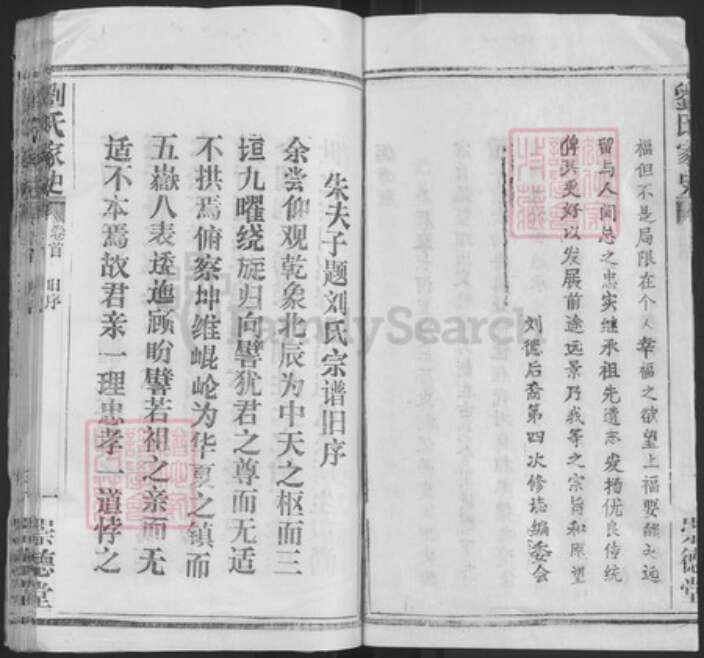 福但不是局限在个人幸福之欲望上福要能永远
留与人间总之忠实继承祖先遗志发扬优良传统
俾其更好以发展前途远景乃我等之宗旨和愿望
刘德后裔第四次修志编委会
劉氏家史
崇德堂
朱夫子题刘氏宗谱旧序
余尝仰观乾象北辰为中天之枢而三
垣九曜绕旋归向譬犹君之尊而无适
不拱焉俯察坤维崐崘为华夏之镇而
五嶽八表逶迤顾盼譬若祖之亲而无
适不本焉故君亲一理忠孝一道悖之
劉氏家史
卷首
旧序
一
崇德堂
FamilySearch